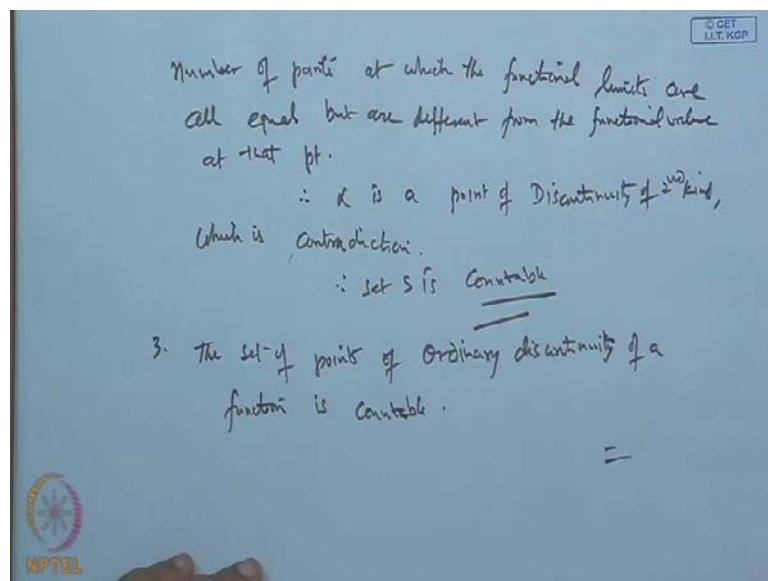 © CET
I.I.T. KGP
Number of points at which the functional limits are
all equal but are different from the functional value
at that pt.
∴ α is a point of Discontinuity of 2nd kind,
which is contradiction.
∴ set S is Countable
3. The set of points of Ordinary discontinuity of a
function is countable.
NPTEL